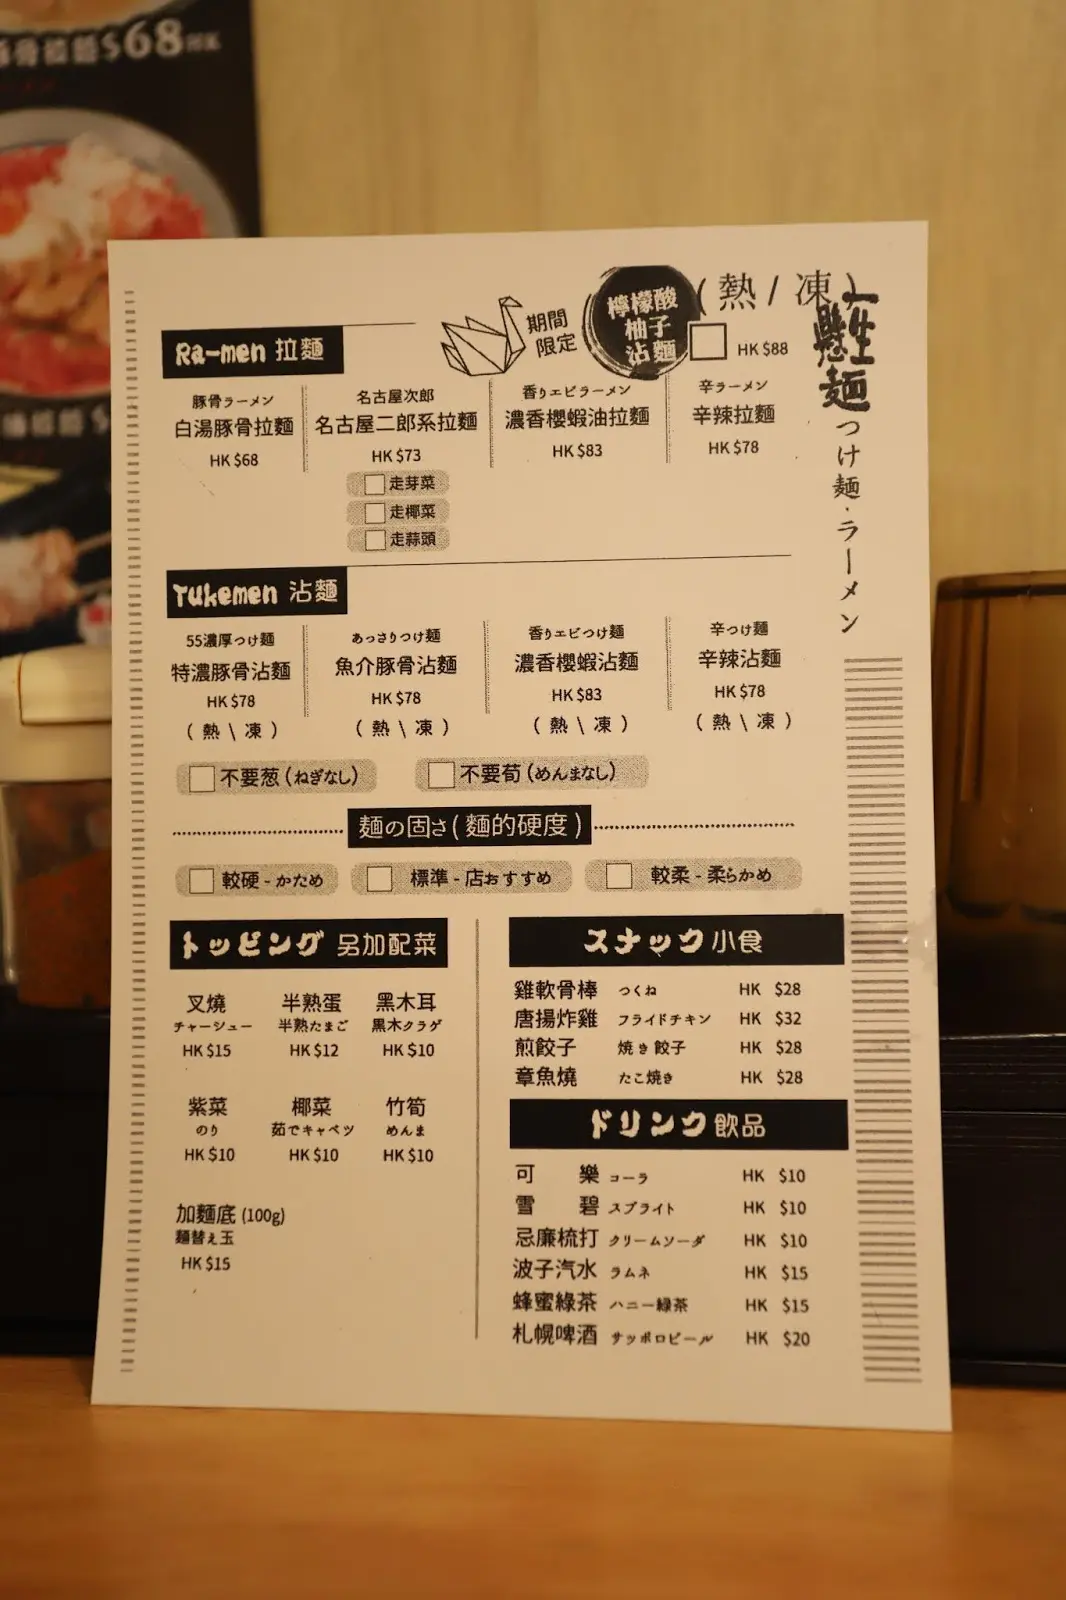 $68
(熱/凍)
檸檬酸
柚子
沾麵
期間
限定
HK $88
一生
懸麵
つけ麺・ラーメン
Ra-men 拉麵
豚骨ラーメン
白湯豚骨拉麵
HK $68
名古屋次郎
名古屋二郎系拉麵
HK $73
走芽菜
走椰菜
走蒜頭
香りエビラーメン
濃香櫻蝦油拉麵
HK $83
辛ラーメン
辛辣拉麵
HK $78
Tukemen 沾麵
55濃厚つけ麺
特濃豚骨沾麵
HK $78
(熱\凍)
あっさりつけ麺
魚介豚骨沾麵
HK $78
(熱\凍)
香りエビつけ麺
濃香櫻蝦沾麵
HK $83
(熱\凍)
辛つけ麺
辛辣沾麵
HK $78
(熱\凍)
不要葱(ねぎなし)
不要荀(めんまなし)
麺の固さ(麵的硬度)
較硬-かため
標準-店おすすめ
較柔-柔らかめ
トッピング 另加配菜
叉燒
チャーシュー
HK $15
半熟蛋
半熟たまご
HK $12
黑木耳
黒木クラゲ
HK $10
紫菜
のり
HK $10
椰菜
茹でキャベツ
HK $10
竹筍
めんま
HK $10
加麵底 (100g)
麺替え玉
HK $15
スナック 小食
雞軟骨棒 つくね HK $28
唐揚炸雞 フライドチキン HK $32
煎餃子 焼き餃子 HK $28
章魚燒 たこ焼き HK $28
ドリンク 飲品
可樂 コーラ HK $10
雪碧 スプライト HK $10
忌廉梳打 クリームソーダ HK $10
波子汽水 ラムネ HK $15
蜂蜜綠茶 ハニー緑茶 HK $15
札幌啤酒 サッポロビール HK $20